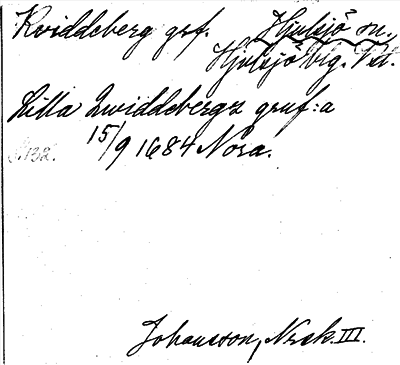 Kviddeberg grf. Hjulsjö sn.
Hjulsjö blg. Vtl.
Lilla Qwiddebergz gruf:a
S. 132. 15/9 1684 Nora.
Johansson, Nrsk. III.